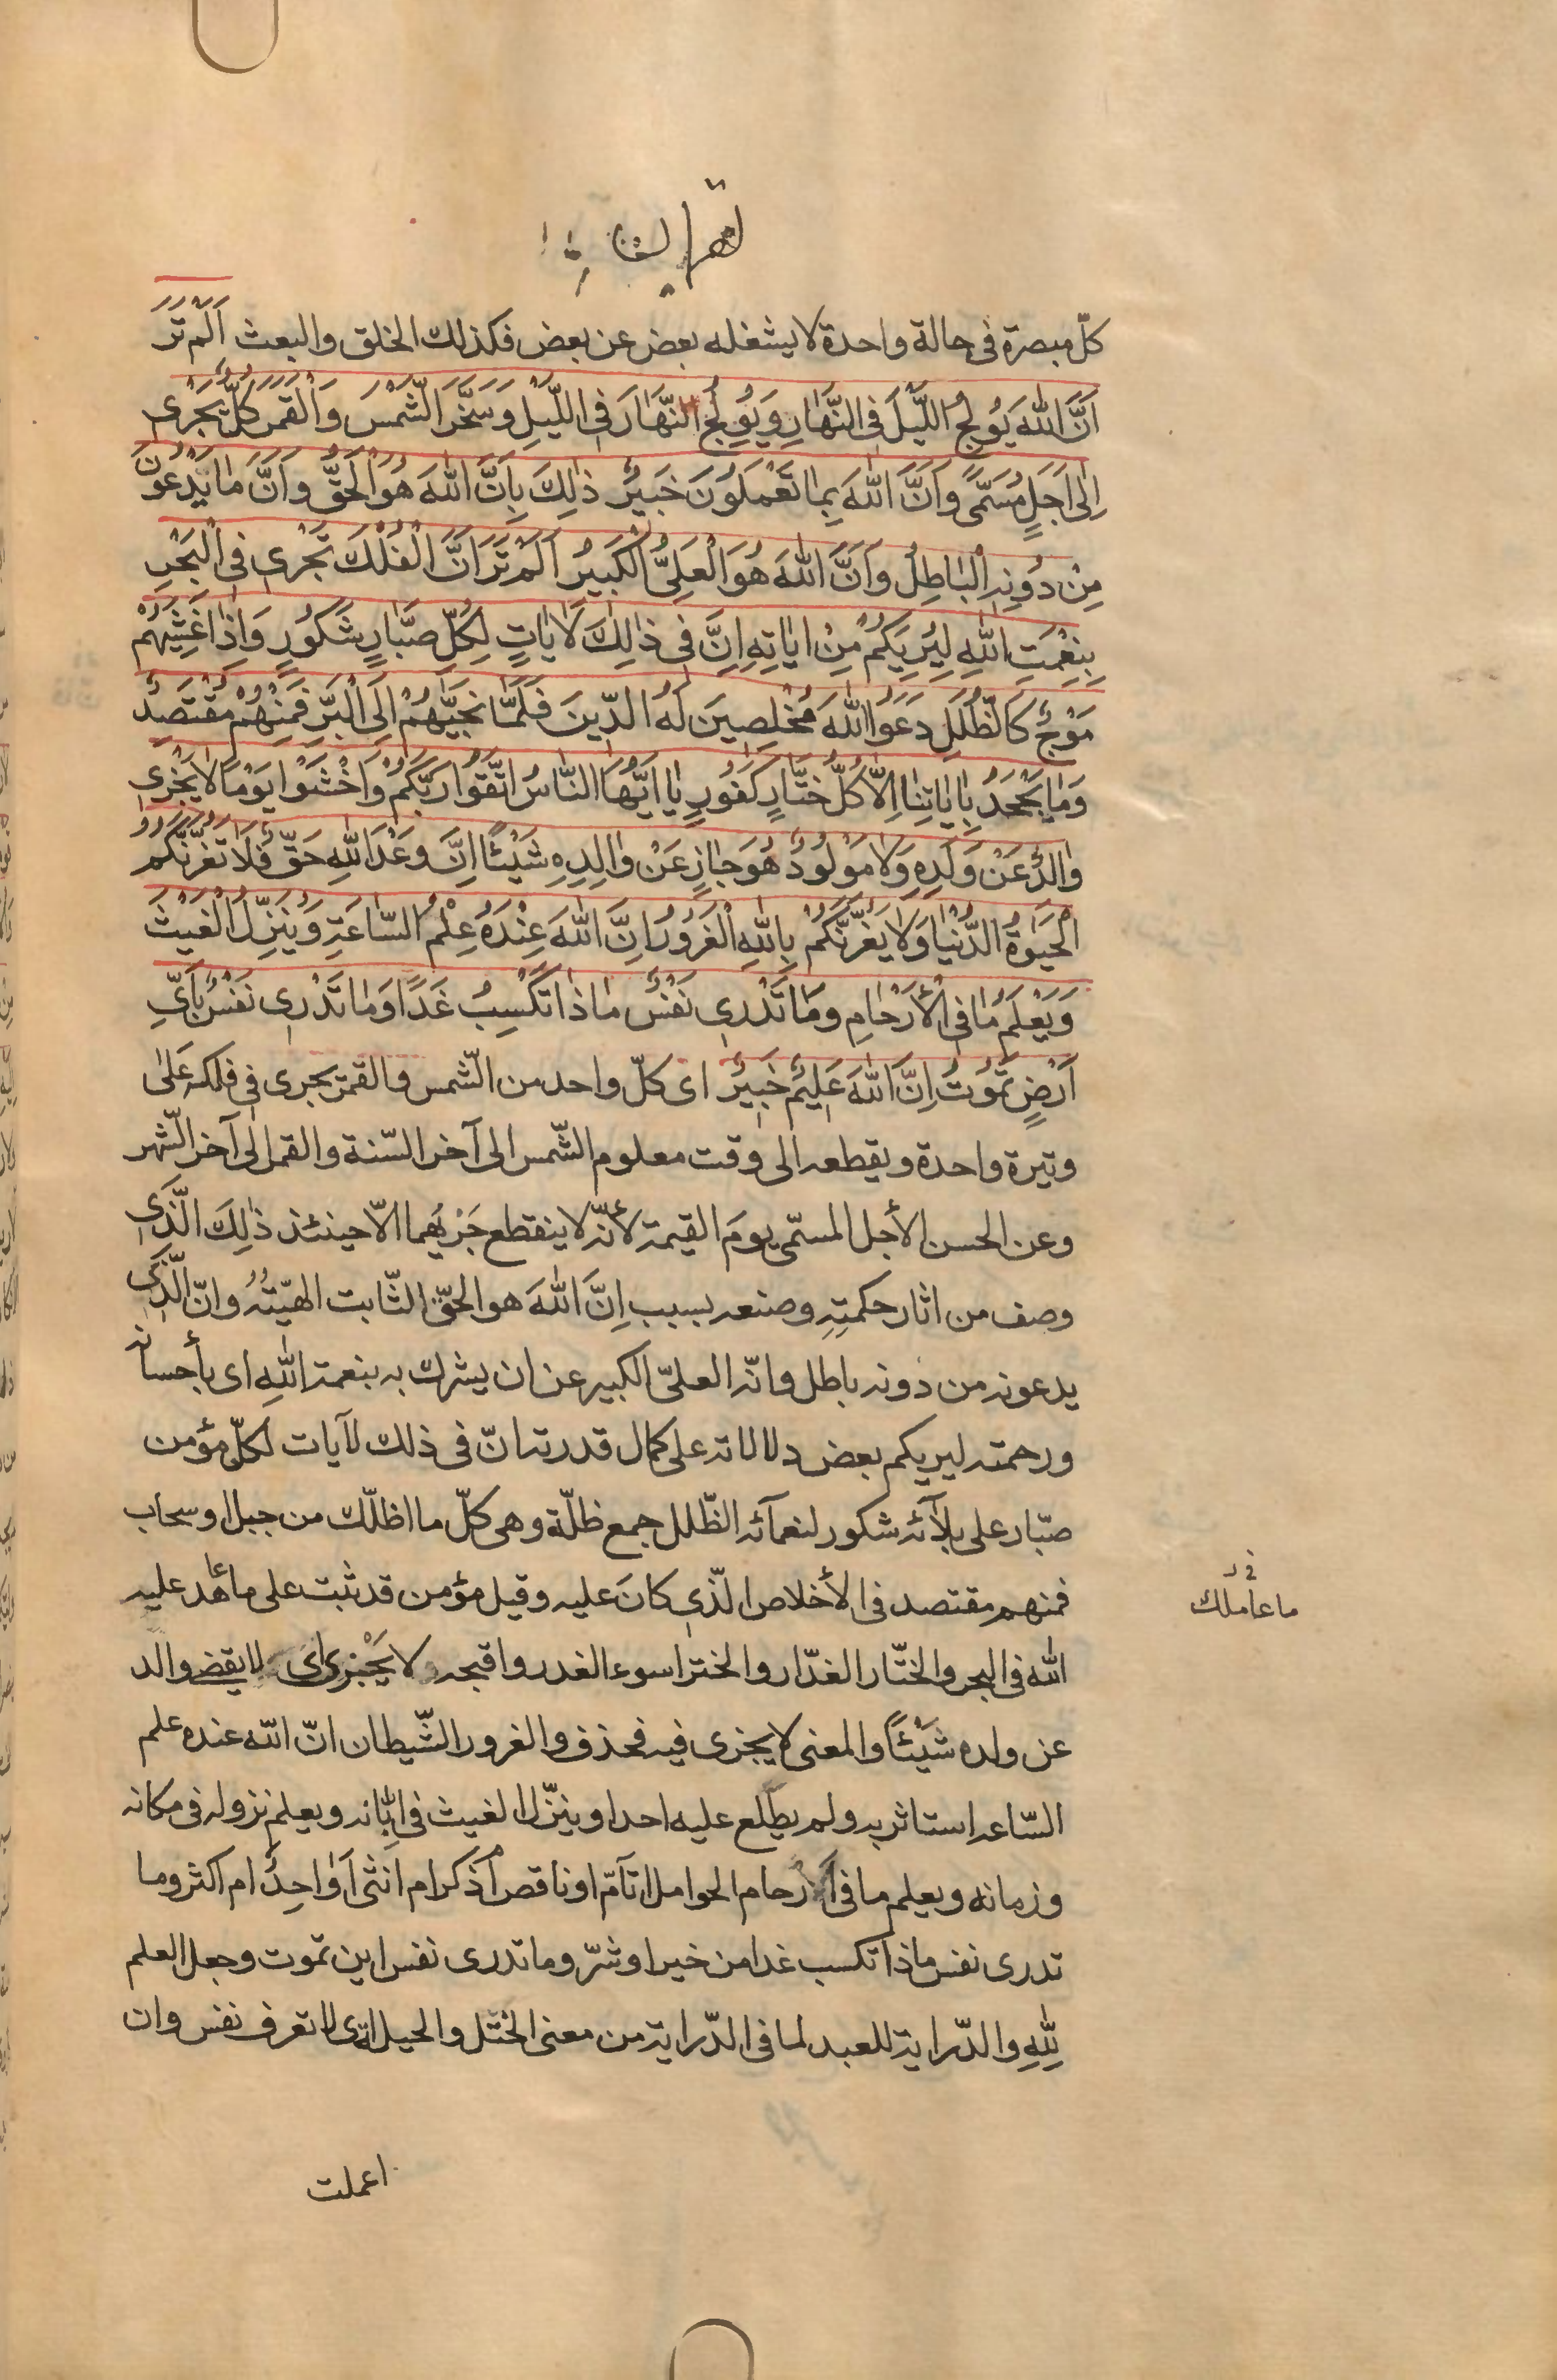 كلّ مبصرة فى حالة واحدة لا يشغله بعض عن بعض فكذلك الخلق والبعث اَلَمْ تَرَ
اَنَّ اللّٰهَ يُولِجُ اللَّيْلَ فِى النَّهَارِ وَيُولِجُ النَّهَارَ فِى اللَّيْلِ وَسَخَّرَ الشَّمْسَ وَالْقَمَرَ كُلٌّ يَجْرِى
اِلٰى اَجَلٍ مُسَمًّى وَاَنَّ اللّٰهَ بِمَا تَعْمَلُونَ خَبِيرٌ ذٰلِكَ بِاَنَّ اللّٰهَ هُوَ الْحَقُّ وَاَنَّ مَا يَدْعُونَ
مِنْ دُونِهِ الْبَاطِلُ وَاَنَّ اللّٰهَ هُوَ الْعَلِىُّ الْكَبِيرُ اَلَمْ تَرَ اَنَّ الْفُلْكَ تَجْرِى فِى الْبَحْرِ
بِنِعْمَتِ اللّٰهِ لِيُرِيَكُمْ مِنْ اٰيَاتِهِ اِنَّ فِى ذٰلِكَ لَاٰيَاتٍ لِكُلِّ صَبَّارٍ شَكُورٍ وَاِذَا غَشِيَهُمْ
مَوْجٌ كَالظُّلَلِ دَعَوُا اللّٰهَ مُخْلِصِينَ لَهُ الدِّينَ فَلَمَّا نَجَّيٰهُمْ اِلَى الْبَرِّ فَمِنْهُمْ مُقْتَصِدٌ
وَمَا يَجْحَدُ بِاٰيَاتِنَا اِلَّا كُلُّ خَتَّارٍ كَفُورٍ يَا اَيُّهَا النَّاسُ اتَّقُوا رَبَّكُمْ وَاخْشَوْا يَوْمًا لَا يَجْزِى
وَالِدٌ عَنْ وَلَدِهِ وَلَا مَوْلُودٌ هُوَ جَازٍ عَنْ وَالِدِهِ شَيْئًا اِنَّ وَعْدَ اللّٰهِ حَقٌّ فَلَا تَغُرَّنَّكُمُ
الْحَيٰوةُ الدُّنْيَا وَلَا يَغُرَّنَّكُمْ بِاللّٰهِ الْغَرُورُ اِنَّ اللّٰهَ عِنْدَهُ عِلْمُ السَّاعَةِ وَيُنَزِّلُ الْغَيْثَ
وَيَعْلَمُ مَا فِى الْأَرْحَامِ وَمَا تَدْرِى نَفْسٌ مَاذَا تَكْسِبُ غَدًا وَمَا تَدْرِى نَفْسٌ بِاَىِّ
اَرْضٍ تَمُوتُ اِنَّ اللّٰهَ عَلِيمٌ خَبِيرٌ اى كلّ واحد من الشّمس والقمر يجرى فى فلكه عَلٰى
وتيرة واحدة ويقطعه الى وقت معلوم الشّمس الى آخر السّنة والقمر الى آخر الشّهر
وعن الحسن الأجل المسمّى يومَ القيمة لأنّه لا ينقطع جَرْيُهما الّا حينئذ ذٰلِكَ الَّذى
وصف من اثار حكمتِهِ وصنعه بسبب اِنَّ اللّٰهَ هو الحقّ الثّابت الهيّتُهُ وانّ الَّذى
يدعونه من دونه باطل وانّه العلىّ الكبير عن ان يشرك به بنعمة اللّٰهِ اى بأحسانه
ورحمته ليريكم بعض دلالاته على كمال قدرته انّ فى ذلك لآيات لكلّ مؤمن
صبّار على بلآئه شكور لنعمآئه الظّلل جمع ظلّة وهى كلّ ما اظلّك من جبل او سحاب
فمنهم مقتصد فى الأخلاص الّذى كانَ عليه وقيل مؤمن قد ثبت على ما عاهد عليه
ما عامل
اللّٰه فى البحر والختّار الغدّار والختر اسوء الغدر واقبحه لا يَجْزى اى لا يقضى والد
عن ولده شَيْئًا والمعنى لا يجزى فيه فحذف والغرور الشّيطان انّ اللّٰه عنده علم
السّاعه استاثر به ولم يطّلع عليه احدا وينزّل الغيث فى ابّانه ويعلم نزوله فى مكانه
وزمانه ويعلم ما فى الأرحام الحوامل اتآمّ او ناقص أذكر ام انثى أوَاحِدٌ ام اكثر وما
تدرى نفس ماذا تكسب غدا من خير او شرّ وما تدرى نفس اين تموت وجعل العلم
لِلّٰهِ والدّراية للعبد لما فى الدّراية من معنى الختل والحيل اى لا تعرف نفس وان
اعملت